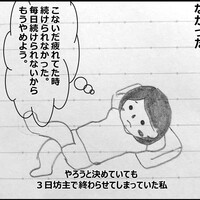 なかった
こないだ疲れてた時
続けられなかった。
毎日続けられないから
もうやめよう。
やろうと決めていても
３日坊主で終わらせてしまっていた私